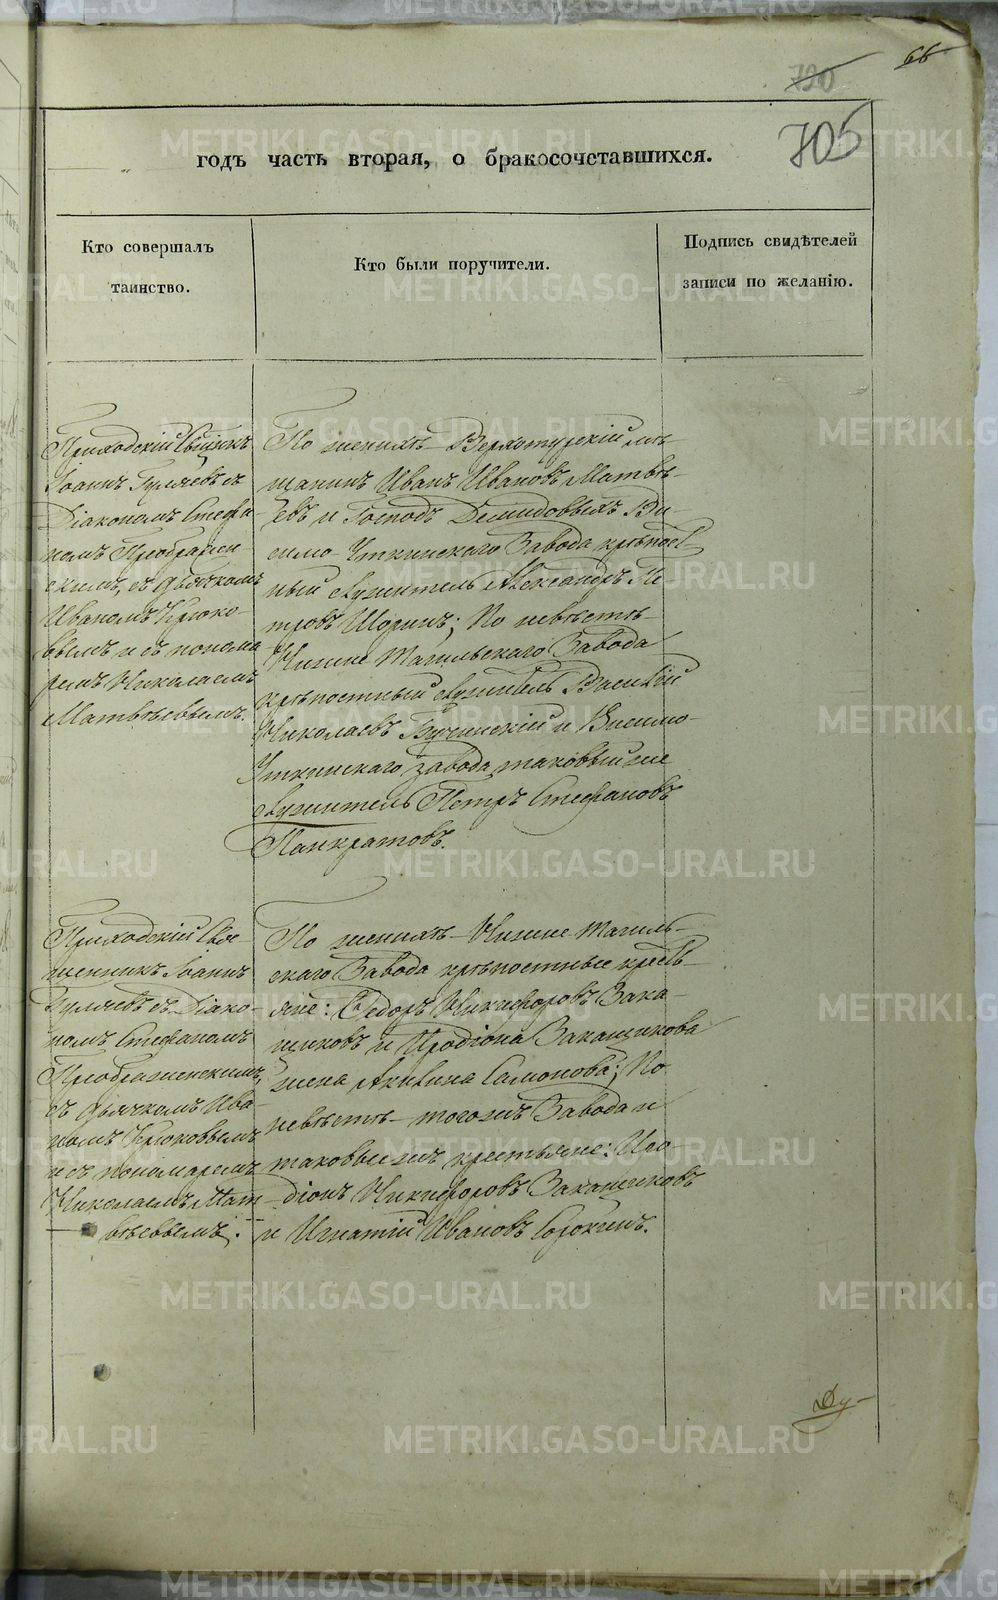 66
720
705
годъ часть вторая, о бракосочетавшихся.
Кто совершалъ
таинство.
Кто были поручители.
Подпись свидѣтелей
записи по желанію.
Приходскій Свщнкъ
Іоаннъ Гуляевъ съ
Діакономъ Стефа-
номъ Преображен-
скимъ, съ дьячкомъ
Иваномъ Крюко-
вымъ и съ понома-
ремъ Николаемъ
Матвѣевымъ.
По женихѣ Верхотурскій мѣ-
щанинъ Иванъ Ивановъ Матвѣ-
евъ и Господъ Демидовыхъ Ви-
симо-Уткинскаго Завода крѣпост-
ный служитель Александръ Пе-
тровъ Шоринъ; По невѣстѣ
Нижне Тагильскаго Завода
крѣпостный служитель Василій
Николаевъ и Висимо-
Уткинскаго завода таковый же
служитель Петръ Стефановъ
Панкратовъ.
Приходскій Свя-
щенникъ Іоаннъ
Гуляевъ съ Діако-
номъ Стефаномъ
Преображенскимъ,
съ дьячкомъ Ива-
номъ Крюковымъ
и съ пономаремъ
Николаемъ Мат-
вѣевымъ.
По женихѣ Нижне Тагиль-
скаго Завода крѣпостные кресть-
яне: Ѳедоръ Никифоровъ Зака-
щиковъ и Иродіона Закащикова
жена Акилина Самонова; По
невѣстѣ тогожъ Завода и
таковые жъ крестьяне: Иро-
діонъ Никифоровъ Закащиковъ
и Игнатій Ивановъ Сорокинъ.
Ду-
METRIKI.GASO-URAL.RU